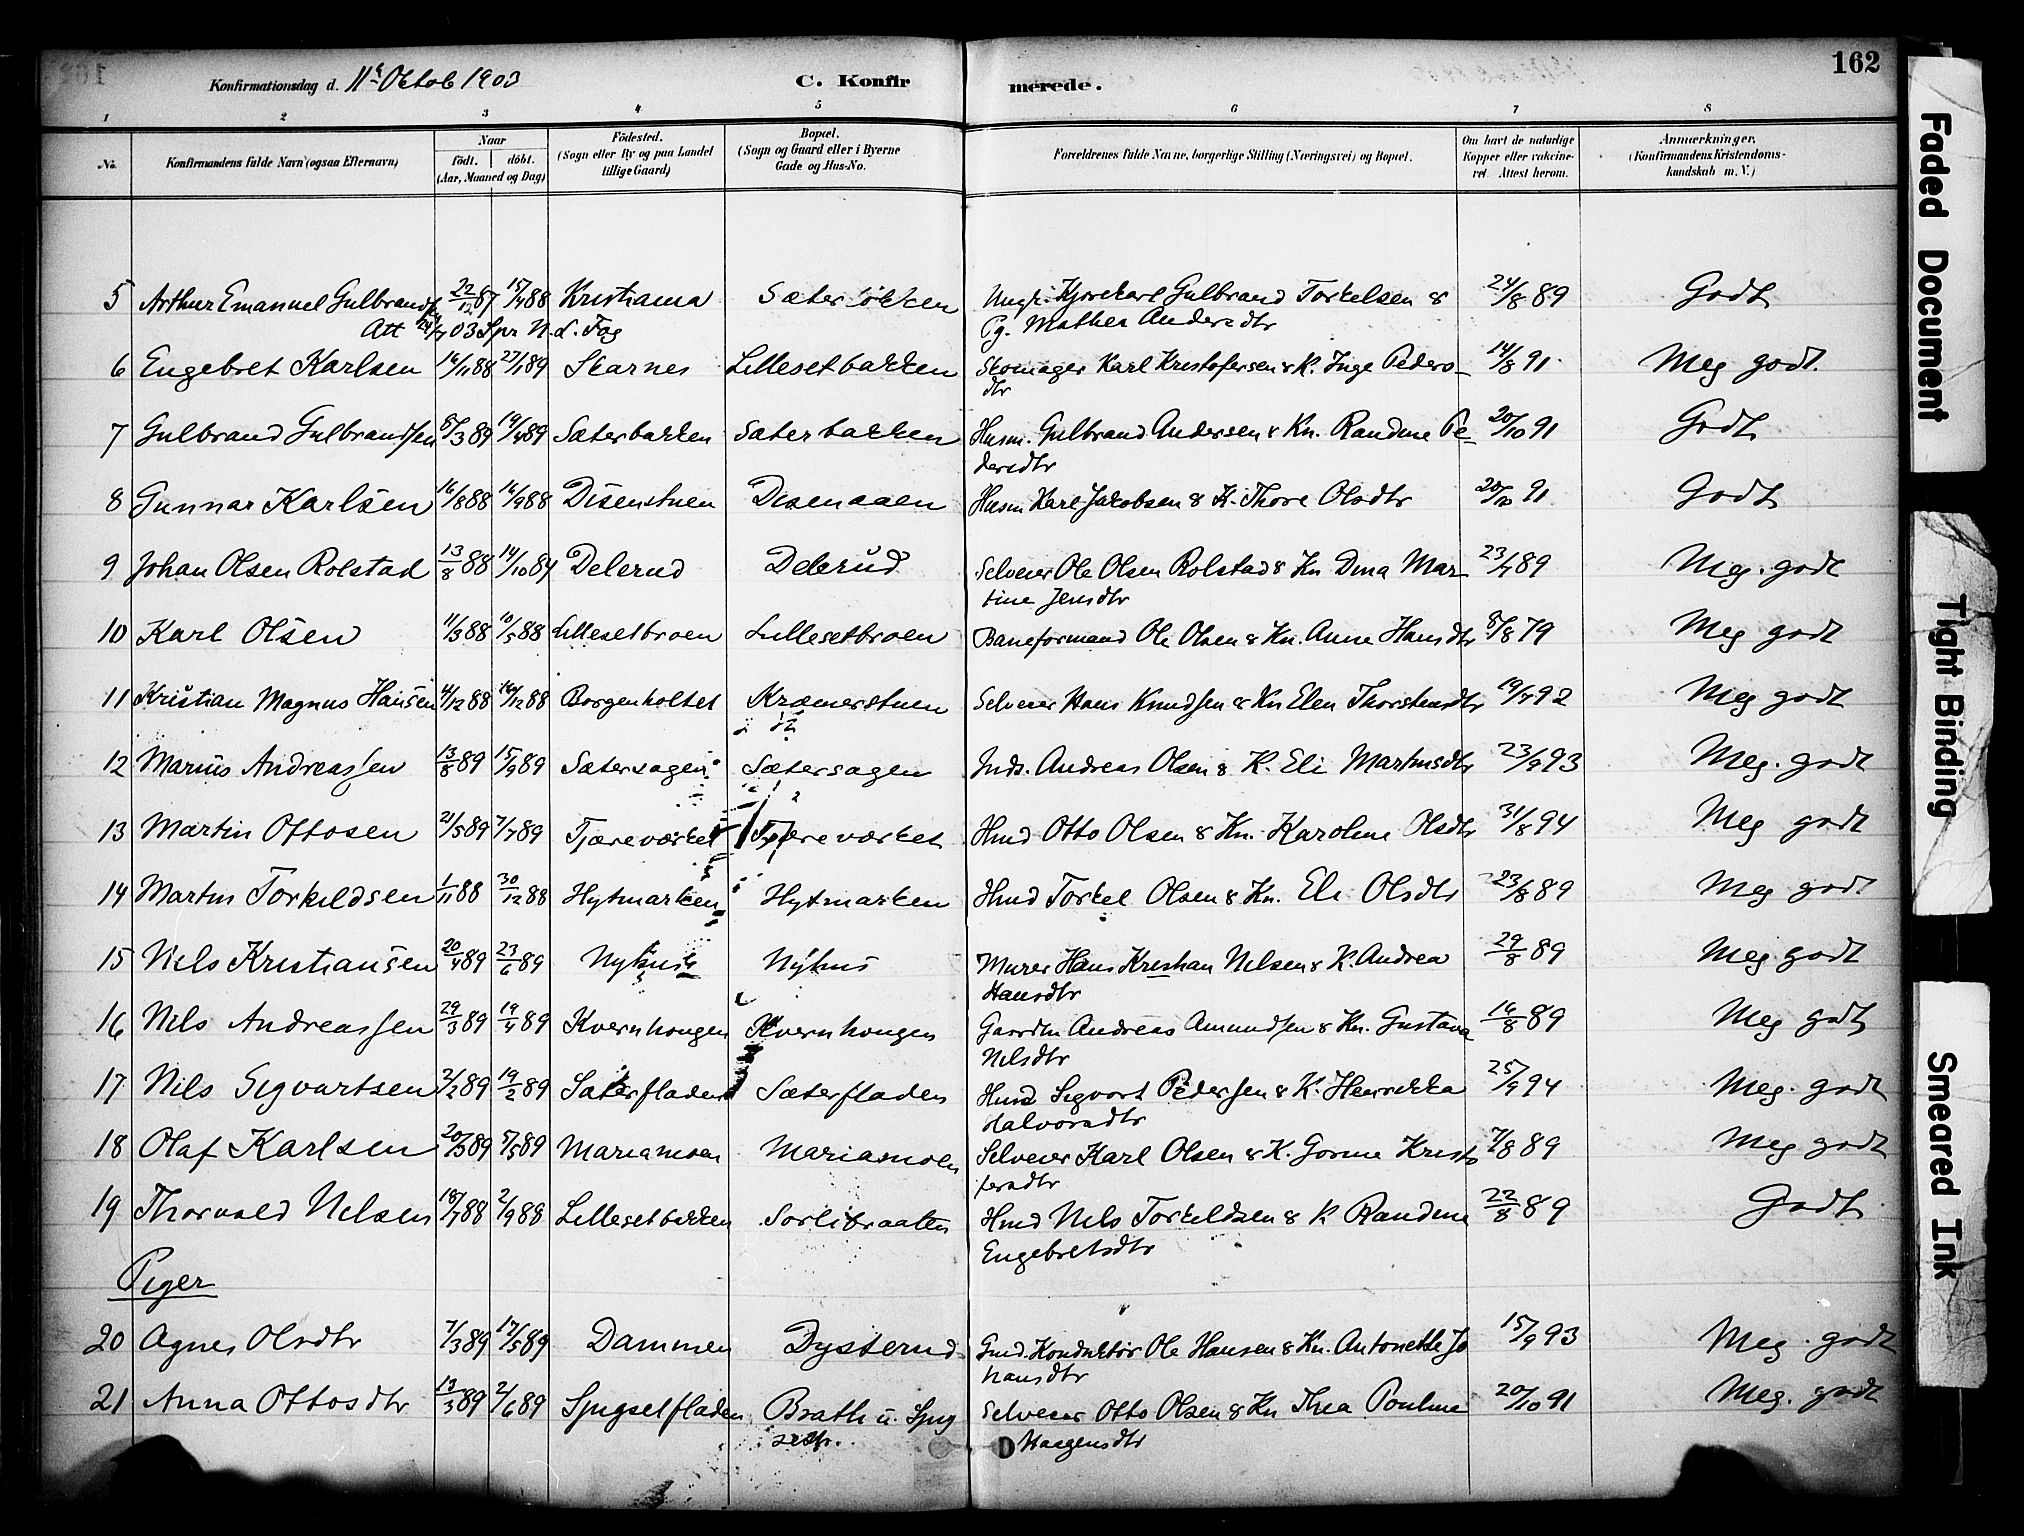 162
Konfirmationsdag d. 11te Oktob 1903 C. Konfirmerede.
1 2 3 4 5 6 7 8
No. Konfirmandens fulde Navn (ogsaa Efternavn) Naar født. døbt. (Aar, Maaned og Dag) Födested. (Sogn eller By og paa Landet tillige Gaard) Bopæl. (Sogn og Gaard eller i Byerne Gade og Hus-No. Forældrenes fulde Navne, borgerlige Stilling (Næringsvei) og Bopæl. Om havt de naturlige Kopper eller vakcineret. Attest herom. Anmærkninger. (Konfirmandens Kristendomskundskab m. V.)
5 Arthur Emanuel Gulbrandsen 22/12 87 15/4 88 Kristiania Sæter Ungk. Kjørekarl Gulbrand Torkelsen & 24/8 89 Godt
Att 03 Spr N.d. Fag Pg. Mathea Andersdtr
6 Engebret Karlsen 16/11 88 27/1 89 Skarnes Lillesetbakken Skomager Karl Kristofersen & K. Inge Peders- 14/8 91 Meg godt.
dtr
7 Gulbrand Gulbrandsen 8/3 89 19/4 89 Sæterbakken Sæterbakken Husm. Gulbrand Andersen & Kn. Randine Pe- 20/10 91 Godt
dersdtr
8 Gunnar Karlsen 16/8 88 16/9 88 Disenstuen Disenaaen Husm Karl Jakobsen & K. Thore Olsdtr 20/10 91 Godt
9 Johan Olsen Rolstad 13/8 88 14/10 84 Delerud Delerud Selveier Ole Olsen Rolstad & Kn Dina Mar- 23/7 89 Meg. godt
tine Jensdtr
10 Karl Olsen 11/3 88 10/5 88 Lillesetbroen Lillesetbroen Baneformand Ole Olsen & Kn. Anne Hansdtr 8/8 79 Meg godt
11 Kristian Magnus Hansen 4/12 88 16/12 88 Borgenholtet Kræmerstuen Selveier Hans Knudsen & Kn Elen Thorstensdtr 19/7 92 Meg godt
12 Marius Andreassen 13/8 89 15/9 89 Sætersagen Sætersagen Inds. Andreas Olsen & K. Eli Martinsdtr 23/9 93 Meg. godt
13 Martin Ottosen 21/5 89 7/7 89 Tjæreværket Tjæreværket Hmd Otto Olsen & Kn. Karoline Olsdtr 31/8 94 Meg godt
14 Martin Torkildsen 1/11 88 30/12 88 Hytmarken Hytmarken Hmd Torkel Olsen & Kn. Eli Olsdtr 23/8 89 Meg godt
15 Nils Kristiansen 20/4 89 23/6 89 Nyhus Nyhus Murer Hans Kristian Nilsen & K. Andrea 29/8 89 Meg godt
Hansdtr
16 Nils Andreassen 29/3 89 19/4 89 Kvernhougen Kvernhougen Gaardm Andreas Amundsen & Kn. Gustava 16/8 89 Meg godt
Nilsdtr
17 Nils Sigvartsen 2/2 89 19/2 89 Sæterfladen Sæterfladen Hmd Sigvart Pedersen & K. Henrikka 25/9 94 Meg. godt
Halvorsdtr
18 Olaf Karlsen 20/3 89 5/5 89 Mariamoen Mariamoen Selveier Karl Olsen & K. Gorine Kristo 7/8 89 Meg godt
fersdtr
19 Thorvald Nilsen 18/7 88 2/9 88 Lillesetbakken Sorlibraaten Hmd Nils Torkildsen & K Randine 22/8 89 Godt
Engebretsdtr
Piger
20 Agnes Olsdtr 7/3 89 17/5 89 Dammen Dysterud Gmd. Konduktør Ole Hansen & Kn. Antonette Jo 15/9 93 Meg. godt
hansdtr
21 Anna Ottosdtr 13/3 89 2/6 89 Spigsetfladen Brath u. Spig Selveier Otto Olsen & Kn Thea Pouline 20/10 91 Meg. godt
setr. Haagensdtr
Faded Document
Tight Binding
Smeared Ink